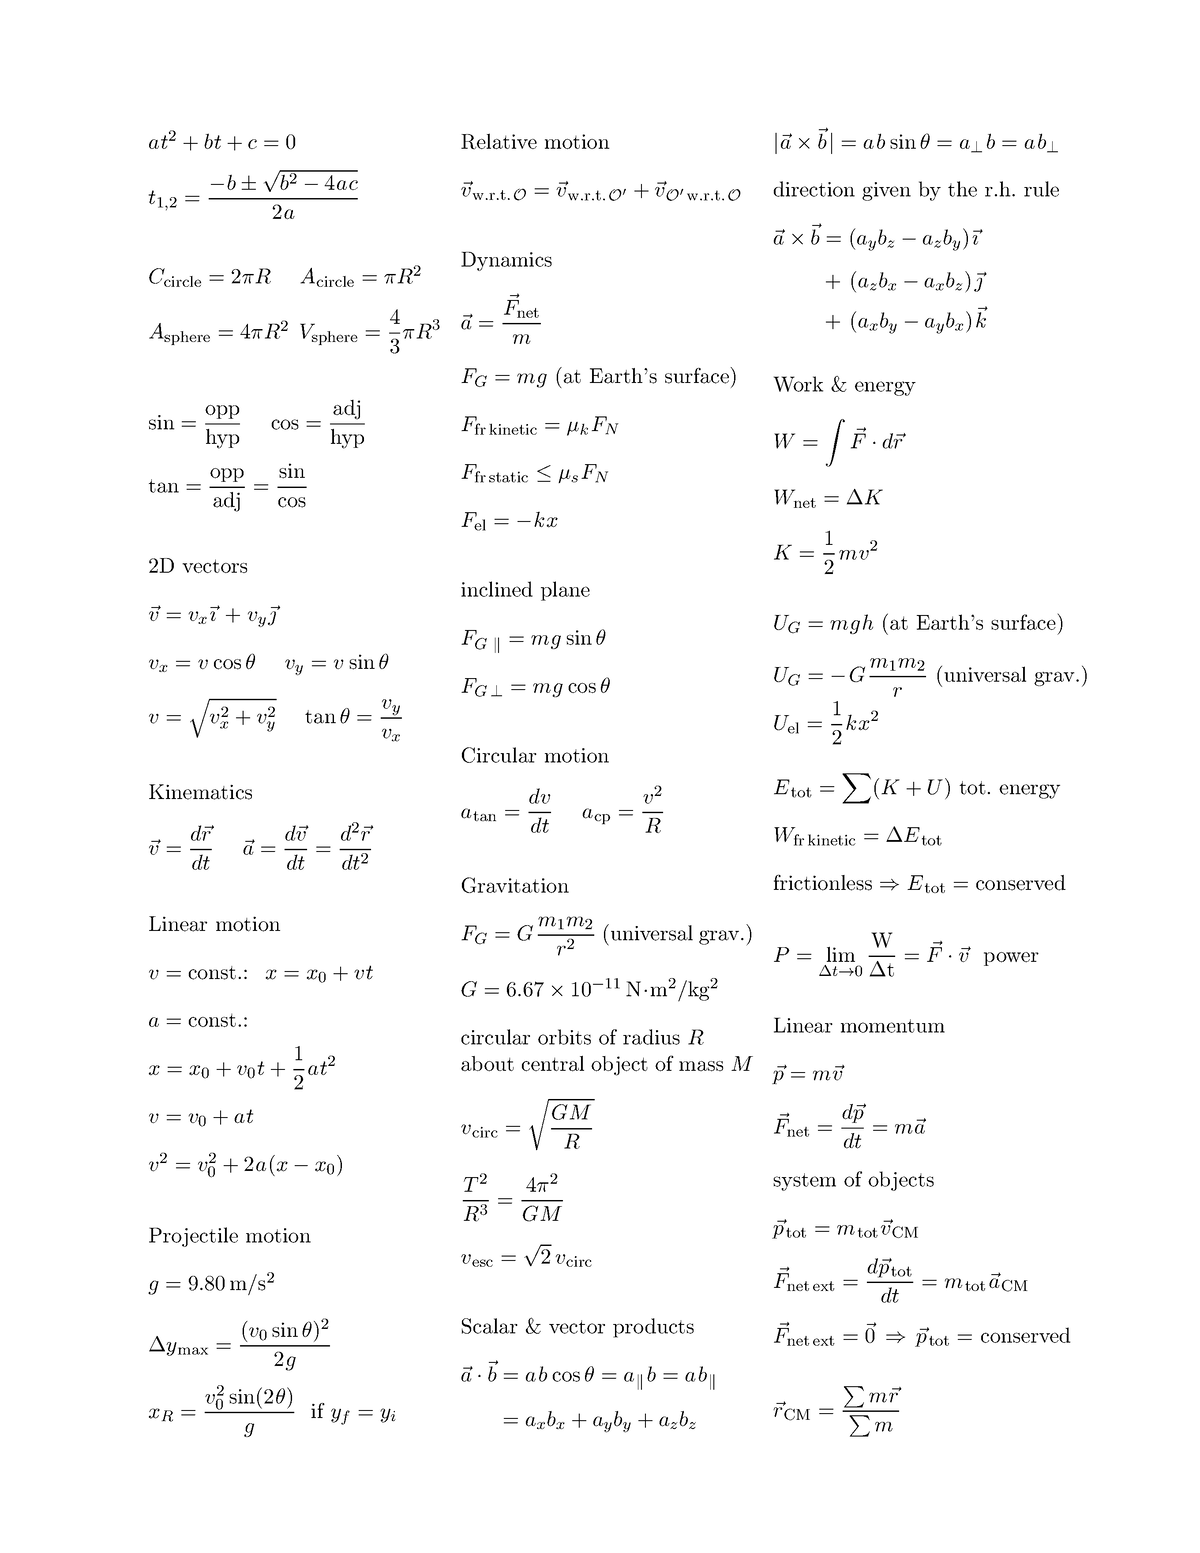 at² + bt + c = 0
t₁,₂ = (−b ± √(b² − 4ac)) / 2a
C_circle = 2πR A_circle = πR²
A_sphere = 4πR² V_sphere = 4/3 πR³
sin = opp/hyp cos = adj/hyp
tan = opp/adj = sin/cos
2D vectors
v⃗ = vₓı⃗ + v_yȷ⃗
vₓ = v cos θ v_y = v sin θ
v = √(vₓ² + v_y²) tan θ = v_y/vₓ
Kinematics
v⃗ = dr⃗/dt a⃗ = dv⃗/dt = d²r⃗/dt²
Linear motion
v = const.: x = x₀ + vt
a = const.:
x = x₀ + v₀t + 1/2 at²
v = v₀ + at
v² = v₀² + 2a(x − x₀)
Projectile motion
g = 9.80 m/s²
Δy_max = (v₀ sin θ)² / 2g
x_R = v₀² sin(2θ) / g if y_f = y_i
Relative motion
v⃗_w.r.t. 𝒪 = v⃗_w.r.t. 𝒪′ + v⃗_𝒪′ w.r.t. 𝒪
Dynamics
a⃗ = F⃗_net / m
F_G = mg (at Earth's surface)
F_fr kinetic = μ_k F_N
F_fr static ≤ μ_s F_N
F_el = −kx
inclined plane
F_G ∥ = mg sin θ
F_G ⊥ = mg cos θ
Circular motion
a_tan = dv/dt a_cp = v²/R
Gravitation
F_G = G m₁m₂/r² (universal grav.)
G = 6.67 × 10⁻¹¹ N·m²/kg²
circular orbits of radius R
about central object of mass M
v_circ = √(GM/R)
T²/R³ = 4π²/GM
v_esc = √2 v_circ
Scalar & vector products
a⃗ · b⃗ = ab cos θ = a_∥ b = ab_∥
= aₓbₓ + a_y b_y + a_z b_z
|a⃗ × b⃗| = ab sin θ = a_⊥ b = ab_⊥
direction given by the r.h. rule
a⃗ × b⃗ = (a_y b_z − a_z b_y)ı⃗
+ (a_z bₓ − aₓ b_z)ȷ⃗
+ (aₓ b_y − a_y bₓ)k⃗
Work & energy
W = ∫ F⃗ · dr⃗
W_net = ΔK
K = 1/2 mv²
U_G = mgh (at Earth's surface)
U_G = −G m₁m₂/r (universal grav.)
U_el = 1/2 kx²
E_tot = ∑(K + U) tot. energy
W_fr kinetic = ΔE_tot
frictionless ⇒ E_tot = conserved
P = lim_Δt→0 W/Δt = F⃗ · v⃗ power
Linear momentum
p⃗ = mv⃗
F⃗_net = dp⃗/dt = ma⃗
system of objects
p⃗_tot = m_tot v⃗_CM
F⃗_net ext = dp⃗_tot/dt = m_tot a⃗_CM
F⃗_net ext = 0⃗ ⇒ p⃗_tot = conserved
r⃗_CM = ∑ mr⃗ / ∑ m